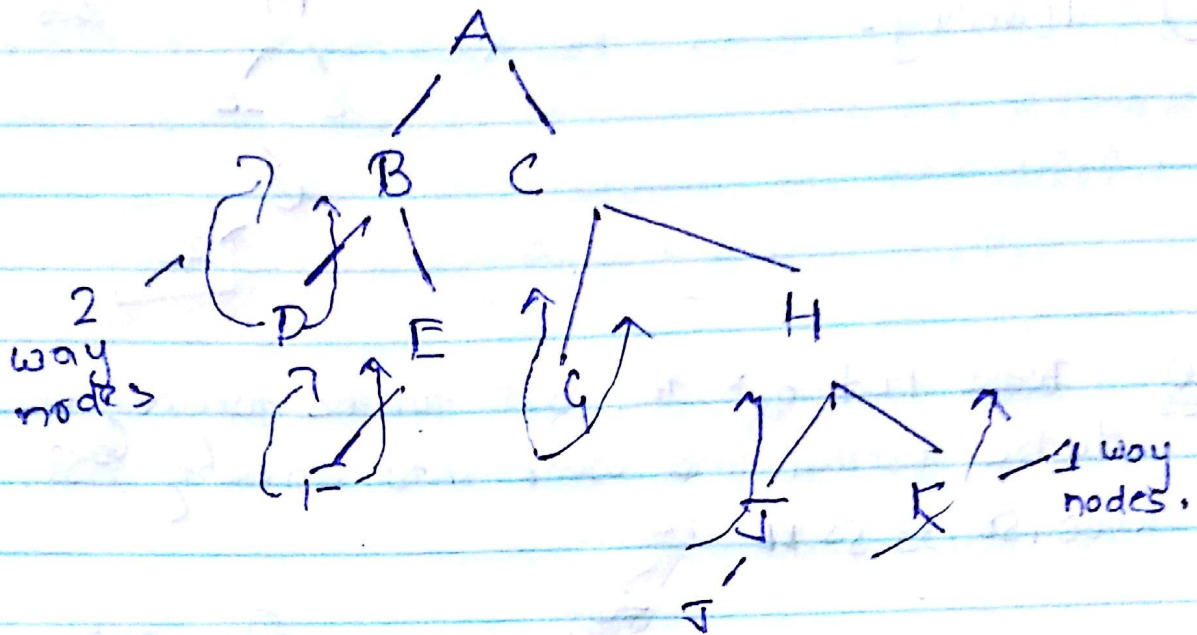 A
B C
2 way nodes
D E
H
G
F
J K
1 way nodes.
J